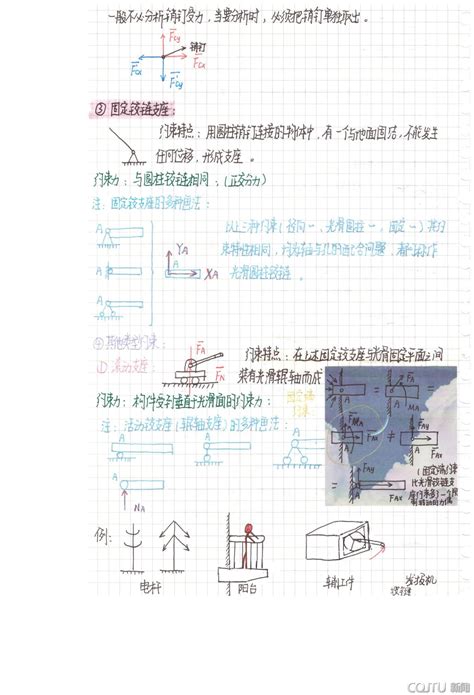 一般不必分析销钉受力,当要分析时,必须把销钉单独取出。
F̄cy
销钉
F̄cx F̄cx
F̄cy
③ 固定铰链支座:
约束特点:用圆柱销钉连接的构件中,有一个与地面固结,不能发生
任何位移,形成支座。
约束力:与圆柱铰链相同;(正交分力)
注:固定铰支座的多种画法:
以上三种约束(径向一、光滑圆柱一、固定一)其约
束特性相同,均为轴与孔的配合问题,都可称作
光滑圆柱铰链。
A
A
A
YA
A
XA
④ 其他类型约束:
① 滚动支座:
F̄A
F̄N
约束特点:在上述固定铰支座与光滑固定平面之间
装有光滑辊轴而成
约束力:构件受到垂直于光滑面的约束力;
固定端
约束
注:活动铰支座(辊轴支座)的多种画法:
A
A
A
A
NA
A
A
MA
F̄Ay
MA
A
F̄Ax
F̄Ay
A
F̄Ax
F̄Ay
A
F̄Ax
(固定端约束
比光滑铰链支
座约束多了一个限
制转动的力偶
例:
电杆
阳台
车削工件
CQJTU 新闻